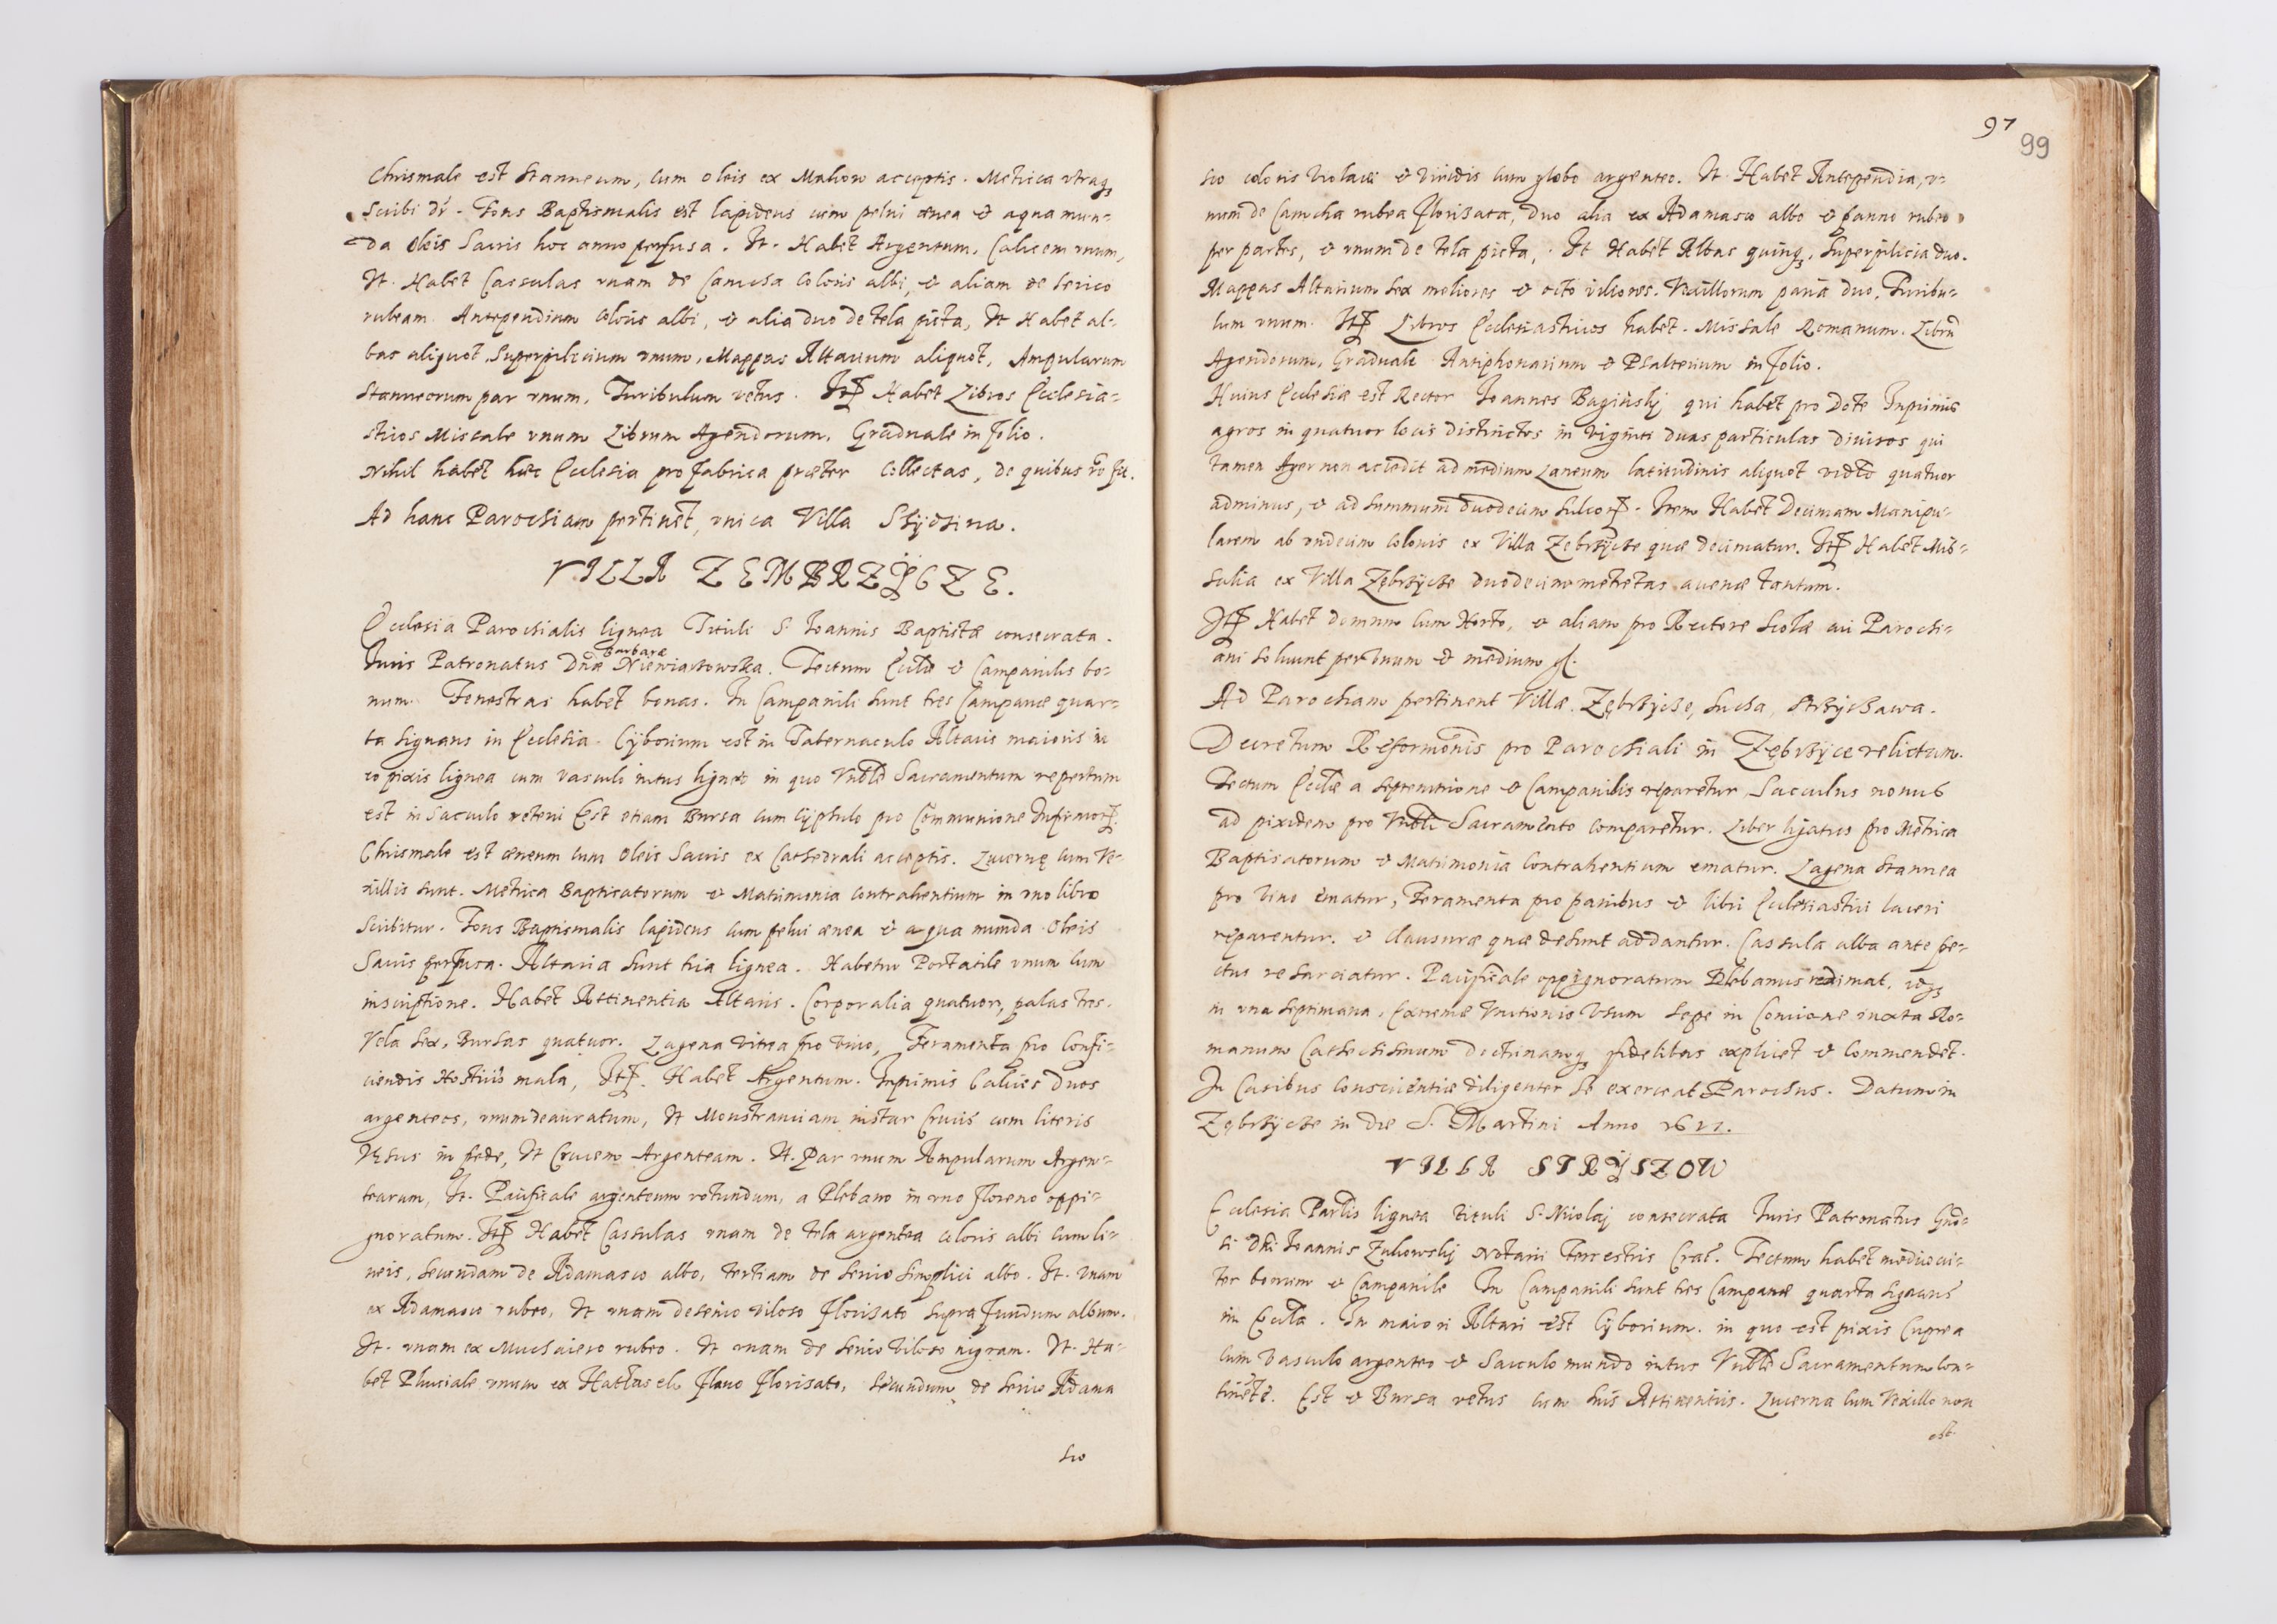 Chrismale est stanneum, cum oleis ex Maliori acceptis. Metrica utraqꝫ
scribi dr. Fons Baptismalis est lapideus cum pelui ænea & aqua mun-
da oleis sacris hoc anno perfusa. It. Habet Argentum. Calicem vnum,
It. Habet Cassulas vnam de Camcha coloris albi, & aliam de serico
rubeam. Antependium coloris albi, & alia duo de tela picta, It Habet al-
bas aliquot, Superpilicium vnum, Mappas Altarium aliquot, Ampularum
stannearum par vnum, Turibulum vetus. Itꝫ Habet Libros Ecclesia-
sticos Missale vnum Librum Agendorum, Graduale in folio.
Nihil habet hæc Ecclesia pro fabrica præter collectas, de quibus ro fit.
Ad hanc Parochiam pertinet, vnica Villa
VILLA ZEMBRZYCZE.
Ecclesia Parochialis lignea Tituli S. Joannis Baptistæ consecrata.
Barbaræ
Juris Patronatus Dnæ Niewiarowska. Tectum Eccliæ & Campanilis bo-
num. Fenestras habet bonas. In Campanili sunt tres Campanæ quar-
ta signans in Ecclesia. Cyborium est in Tabernaculo Altaris maioris in
eo pixis lignea cum vasculi intus ligneo in quo Vnbld Sacramentum repertum
est in sacculo veteri Est etiam Bursa cum cyphulo pro Communione Infirmorꝫ.
Chrismale est æneum cum oleis sacris ex Cathedrali acceptis. Lucernę cum Ve-
xillis sunt. Metrica Baptisatorum & Matrimonia contrahentium in vno libro
scribitur. Fons Baptismalis lapideus cum pelui ænea & aqua munda oleis
sacris perfusa. Altaria sunt tria lignea. Habetur Portatile vnum cum
inscriptione. Habet Attinentia Altaris. Corporalia quatuor, palas tres.
Vela sex, Bursas quatuor. Lagena vitrea pro vino, Feramenta pro confi-
ciendis Hostiis mala, Itꝫ. Habet Argentum. Inprimis Calices duos
argenteos, vnum deauratum, It Monstranciam instar Crucis cum literis
in pede, It Crucem Argenteam. It. Par vnum Ampularum Argen-
tearum, It. Pacificale argenteum rotundum, a Plebano in vno floreno oppi-
gnoratum. Itꝫ Habet Cassulas vnam de tela argentea coloris albi cum li-
neis, secundam de Adamasco albo, tertiam de serico simplici albo. It. vnam
ex Adamasco rubeo, It vnam de serico viloso florisato supra fundum album.
It. vnam ex Muchaiero rubeo. It vnam de serico viloso nigram. It. Ha-
bet Pluuiale vnum ex Hatlasch flauo florisato, secundum de serico Adama
sco
97
99
sco coloris violacei & viridis cum globo argenteo. It Habet Antependia, v-
num de Camcha rubea florisata, duo alia ex Adamasco albo & panno rubeo
per partes, & vnum de tela picta, It Habet Albas quinqꝫ, Superpilicia duo.
Mappas Altarium sex meliores & octo viliores. Vexillorum paria duo, Turibu-
lum vnum. Itꝫ Libros Ecclesiasticos habet. Missale Romanum. Librū
Agendorum, Graduale Antiphonarium & Psalterium in folio.
Huius Ecclesiæ est Rector Joannes Bagiński qui habet pro dote Inprimis
agros in quatuor locis distinctos in viginti duas particulas diuisos qui
tamen Ager non accedit ad medium Laneum latitudinis aliquot quatuor
adminus, & ad summum duodecim sulcorꝫ. Item Habet Decimam Manipu-
larem ab vndecim colonis ex Villa Zębrzycze quæ decimatur. Itꝫ Habet Mis-
salia ex Villa Zębrzycze duodecim metretas auenæ tantum.
Itꝫ Habet domum cum Horto, & aliam pro Rectore Scolæ cui Parochi-
ani soluunt per vnum & medium gl.
Ad Parochiam pertinent Villæ. Zębrzycze, Sucha, Strzyczawa.
Decretum Reformõnis pro Parochiali in Zębrzyce relictum.
Tectum Eccliæ a septentrione & Campanilis reparetur Sacculus nouus
ad pixidem pro Vnbli Sacramento comparetur. Liber ligatus pro Metrica
Baptisatorum & Matrimonia Contrahentium ematur. Lagena stannea
pro vino ematur, Feramenta pro panibus & libri Ecclesiastici laceri
reparentur. & clausuræ quæ desunt addantur. Cassula alba ante pe-
ctus resarciatur. Pacificale oppignoratum Plebanus redimat, idqꝫ
in vna septimana. Extremæ Vnctionis Vsum sepe in Concione iuxta Ro-
manum Cathechismum doctrinamqꝫ fidelibus explicet & commendet.
In Casibus conscientiæ diligenter se exerceat Parochus. Datum in
Zębrzycze in die S. Martini Anno
VILLA STRYSZOW
Ecclesia Parlis lignea tituli S. Nicolaj consecrata Juris Patronatus Gnō-
si Dni Joannis Zukowskj Notarii Terrestris Crac. Tectum habet mediocri-
ter bonum & Campanile In Campanili sunt tres Campanæ quarta signans
in Eccla. In maiori Altari est Cyborium. in quo est pixis Cuprea
cum vasculo argenteo & sacculo mundo intus Vnbld Sacramentum con-
tinēte. Est & Bursa vetus cum suis Attinentiis. Lucerna cum Vexillo non
est.